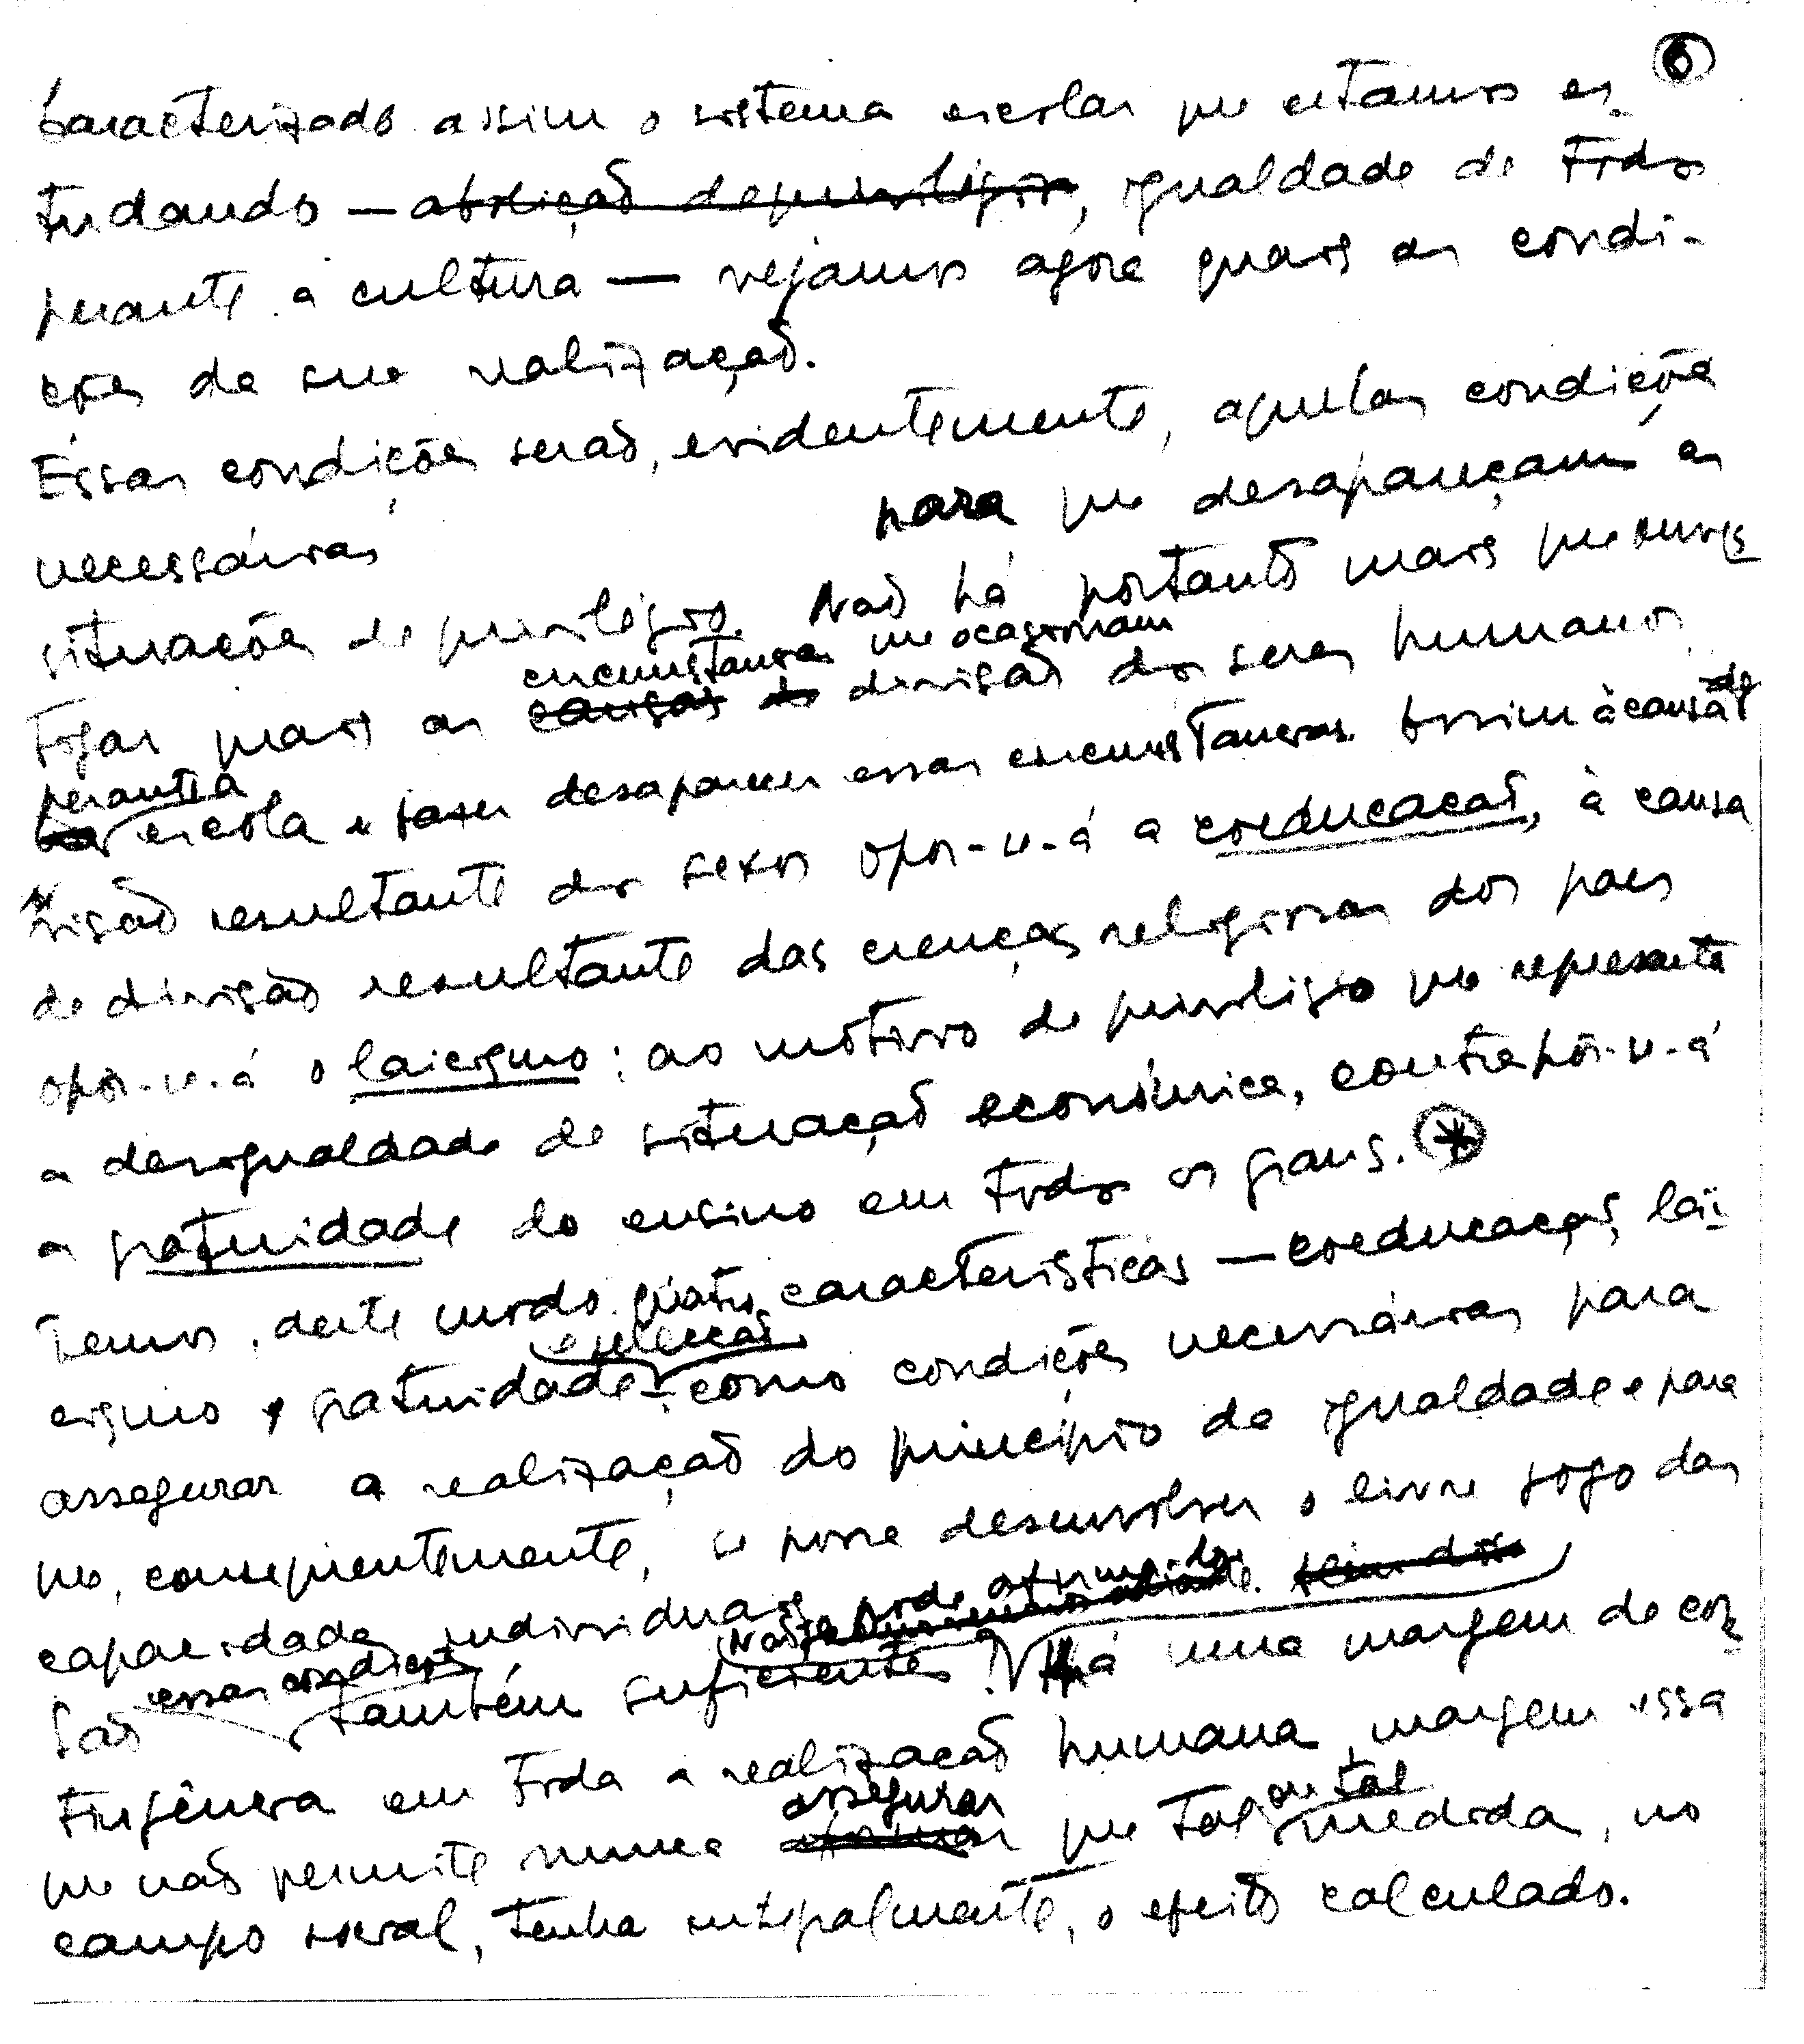 6
Caracterizado assim o sistema escolar que estamos es-
tudando — abolição de privilégios, igualdade de todos
perante a cultura — vejamos agora quais as condi-
ções da sua realização.
Essas condições serão, evidentemente, aquelas condições
necessárias para que desapareçam as
situações de privilégio. Não há portanto mais que inves-
circumstancias que ocasionam
tigar quais as causas da divisão dos seres humanos
perante a
escola e fazer desaparecer essas circumstancias. Assim à causa de
visão resultante dos sexos opor-se-á a coeducação, à causa
de divisão resultante das crenças religiosas dos paes
opôr-se-á o laicismo; ao motivo de privilegio que representa
a desigualdade de situação económica, contrapôr-se-á
a gratuidade do ensino em todos os graus. *
Temos, deste modo, quatro características — coeducação, laï-
e selecção
cismo e gratuidade — como condições necessárias para
assegurar a realização do princípio da igualdade e para
que, consequentemente, se possa desenvolver o livre jogo das
capacidades individuais.
essas condições
São também suficientes? Há uma margem de con-
tingência em toda a realização humana, margem essa
assegurar
que não permite nunca afirmar que tal
ou tal
medida, no
campo social, tenha integralmente, o efeito calculado.